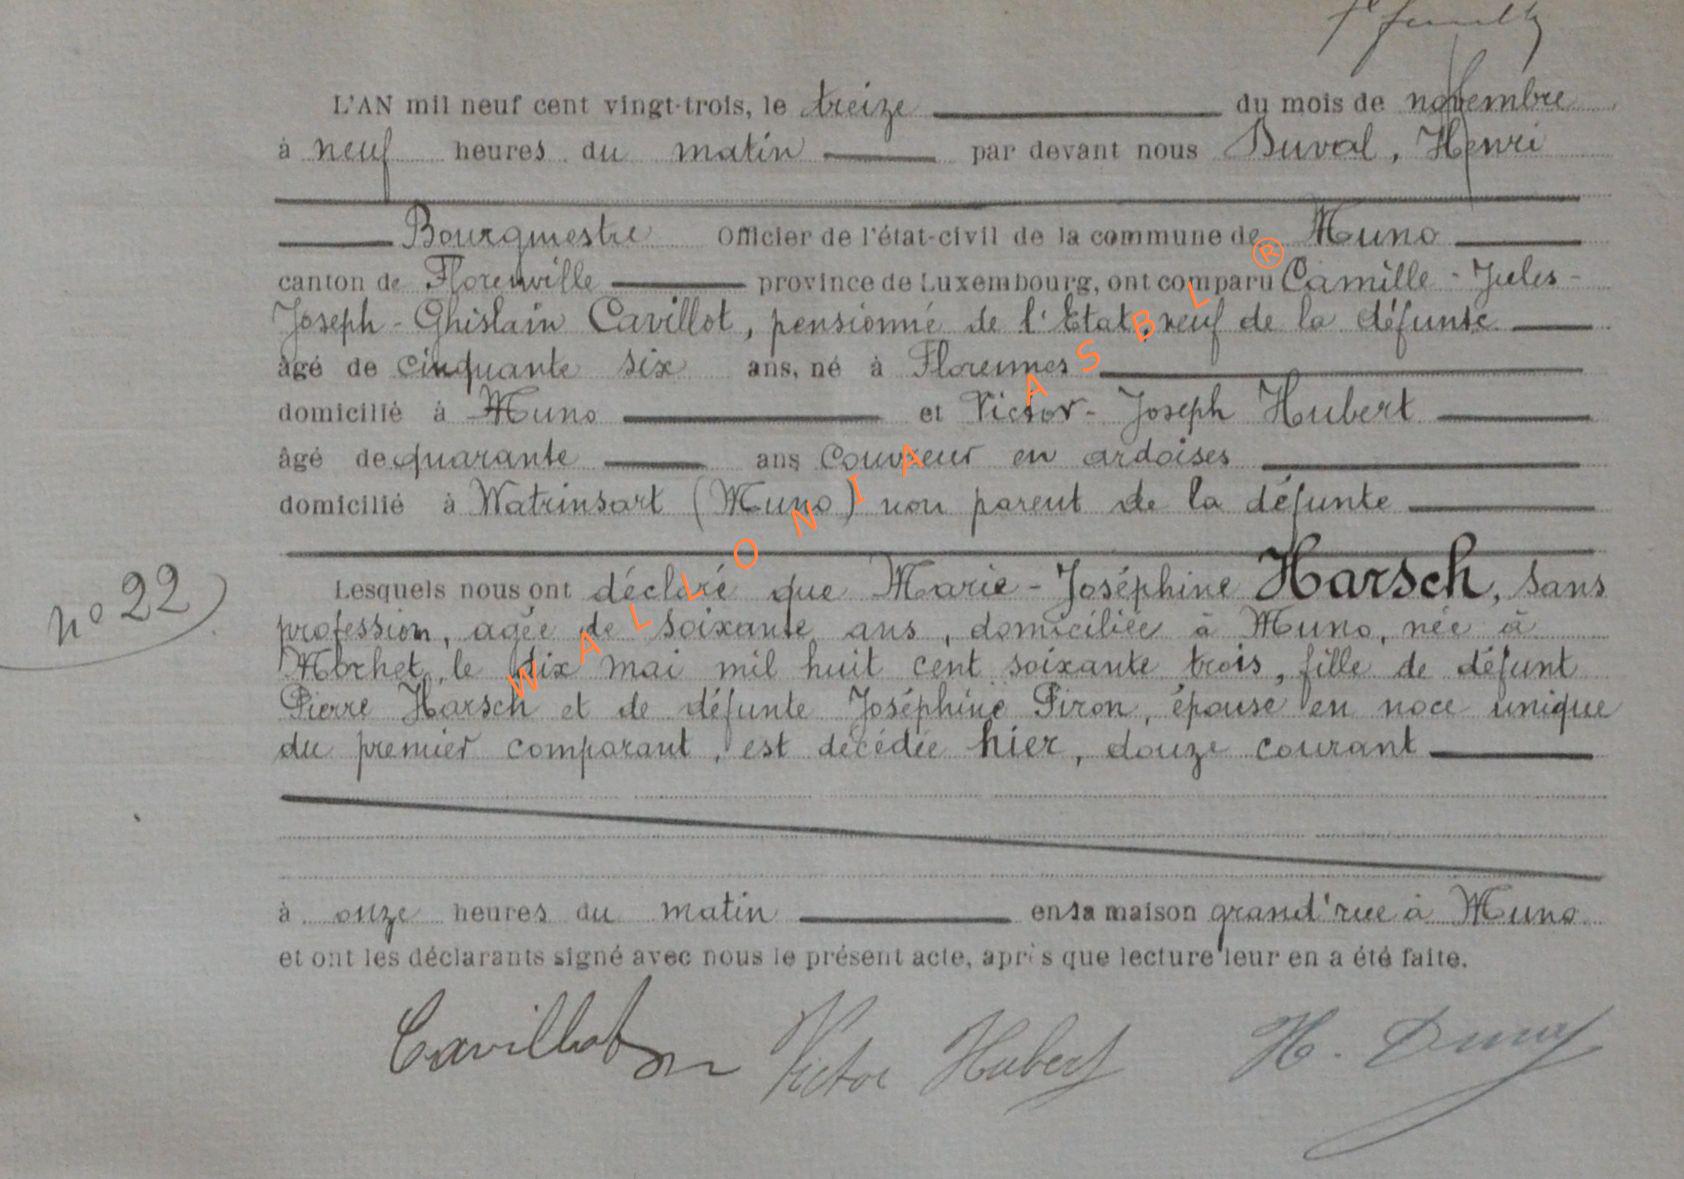 L'AN mil neuf cent vingt-trois, le treize du mois de novembre
à neuf heures du matin par devant nous Duval, Henri
Bourgmestre Officier de l'état-civil de la commune de Muno
canton de Florenville province de Luxembourg, ont comparu Camille - Jules -
Joseph - Ghislain Cavillot, pensionné de l'Etat, veuf de la défunte
âgé de cinquante six ans, né à Florennes
domicilié à Muno et Victor - Joseph Hubert
âgé de quarante ans couvreur en ardoises
domicilié à Watrinsart (Muno) non parent de la défunte
nº 22
Lesquels nous ont déclaré que Marie - Joséphine Harsch, sans
profession, agée de soixante ans, domiciliée à Muno, née à
Morhet, le dix mai mil huit cent soixante trois, fille de défunt
Pierre Harsch et de défunte Joséphine Piron, épouse en noce unique
du premier comparant, est décédée hier, douze courant
à onze heures du matin en sa maison grand'rue à Muno
et ont les déclarants signé avec nous le présent acte, après que lecture leur en a été faite.
Cavillot Victor Hubert H. Duval
WALLONIA ASBL ®